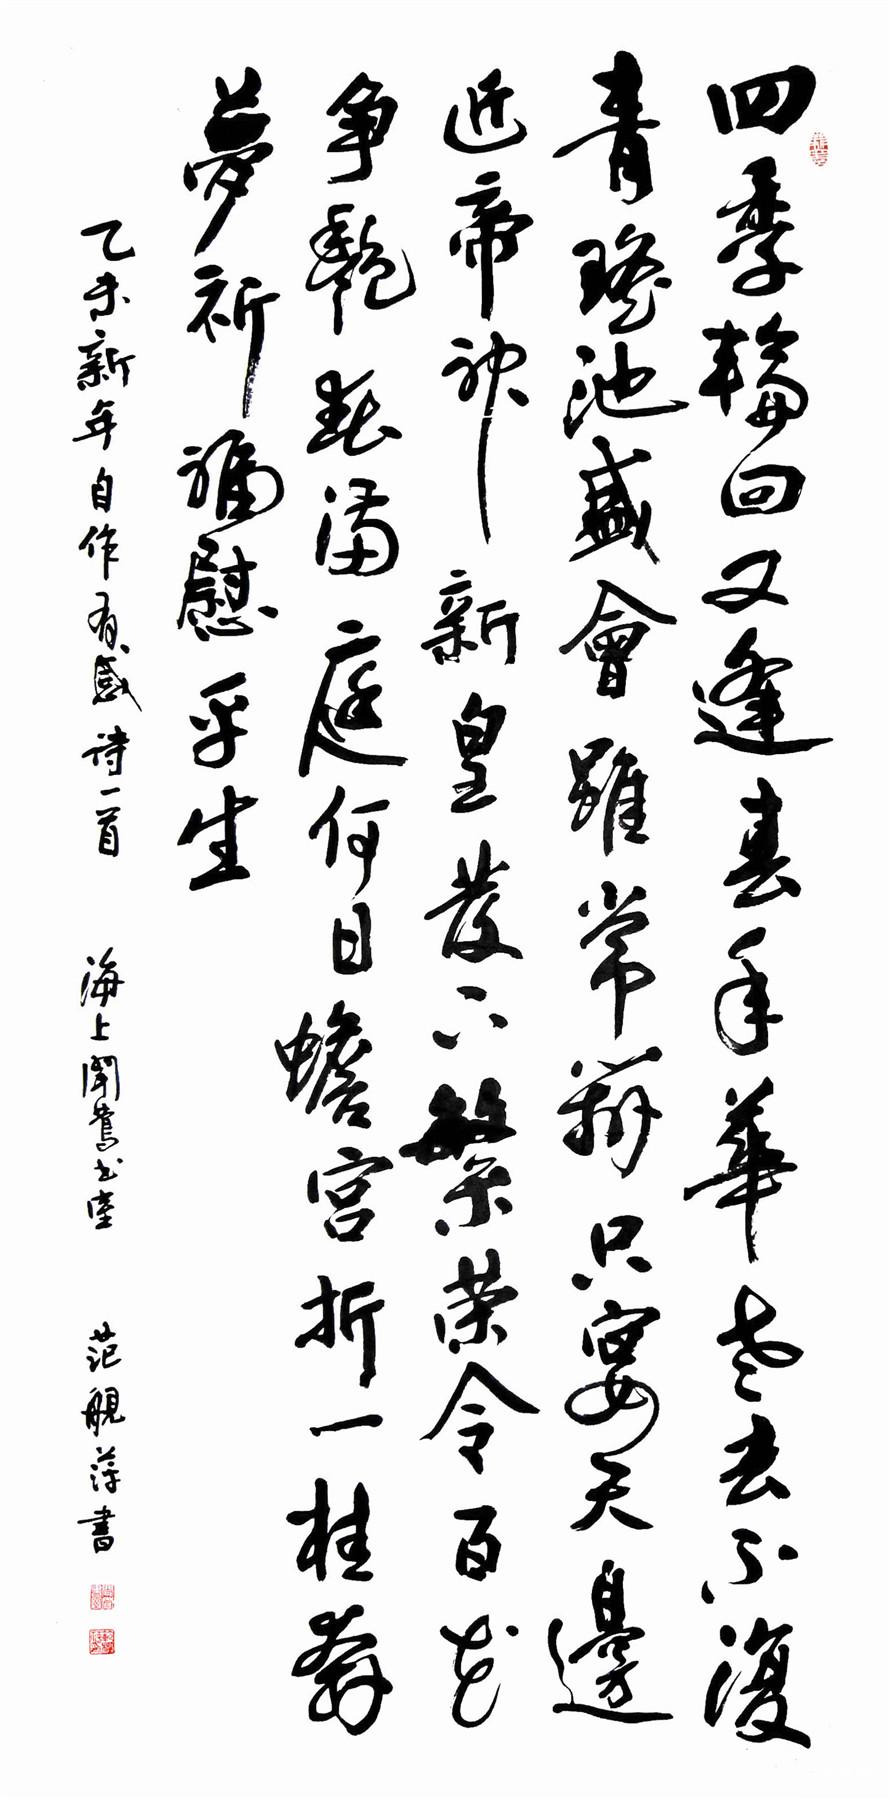 四季輪回又逢春年華老去不復
青瑤池盛會雖常辦只宴天邊
近帝神新皇發下繁榮令百花
争艷春滿庭何日蟾宮折一桂奔
夢祈福慰平生
乙未新年自作有感詩一首 海上聞鶯書室 范萍書